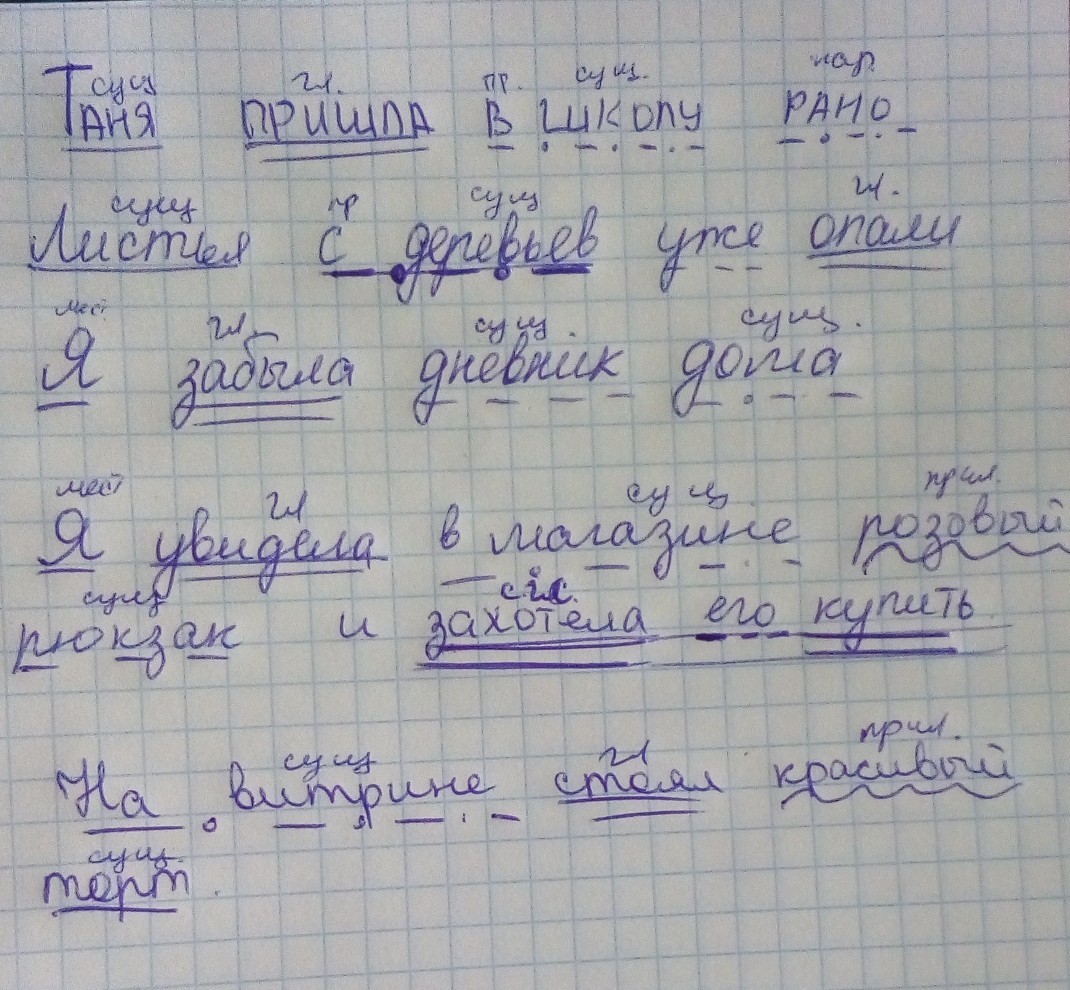 сущ гл. пр. сущ. нар.
ТАНЯ ПРИШЛА В ШКОЛУ РАНО
сущ пр сущ гл.
Листья с деревьев уже опали
мест гл. сущ. сущ.
Я забыла дневник дома
мест гл сущ прил.
Я увидела в магазине розовый
сущ гл.
рюкзак и захотела его купить
сущ гл прил.
На витрине стоял красивый
сущ.
торт.